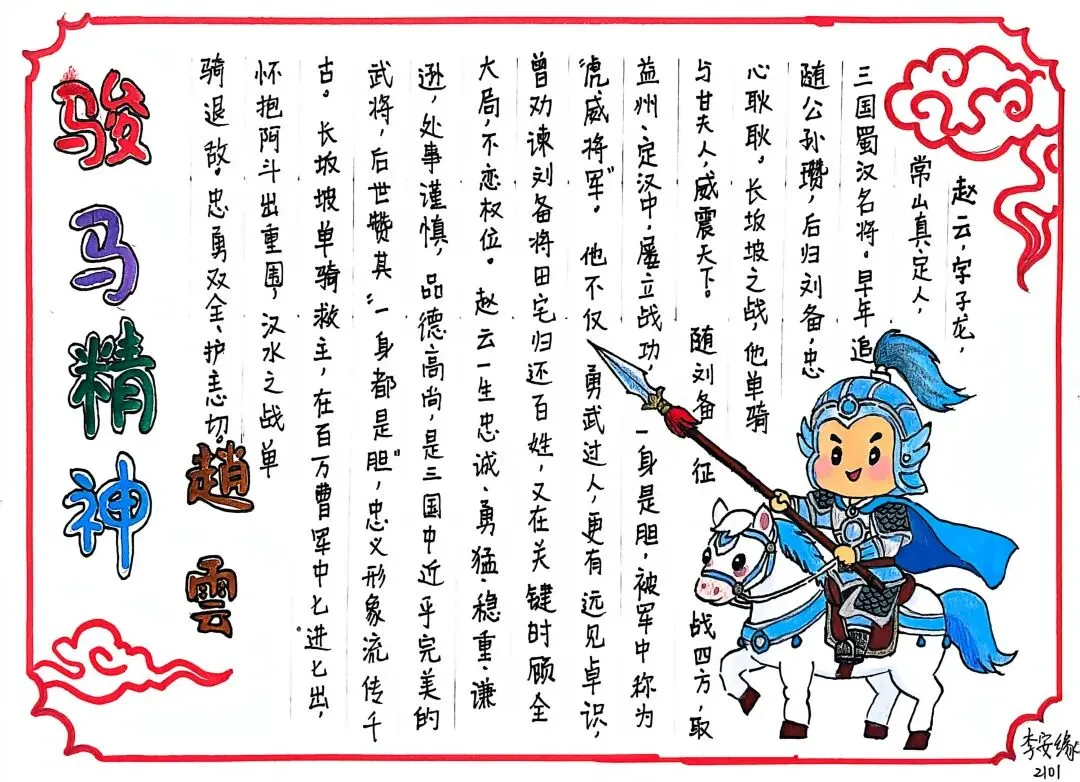 骏马精神
赵云,字子龙,
常山真定人,
三国蜀汉名将。早年追
随公孙瓒,后归刘备,忠
心耿耿。长坂坡之战,他单骑
与甘夫人,威震天下。随刘备征战四方,取
益州、定汉中,屡立战功,一身是胆,被军中称为
“虎威将军”。他不仅勇武过人,更有远见卓识,
曾劝谏刘备将田宅归还百姓,又在关键时顾全
大局,不恋权位。赵云一生忠诚、勇猛、稳重、谦
逊,处事谨慎,品德高尚,是三国中近乎完美的
武将,后世赞其“一身都是胆”,忠义形象流传千
古。长坂坡单骑救主,在百万曹军中七进七出,
怀抱阿斗出重围,汉水之战单
骑退敌。忠勇双全、护志切。
趙雲
李安缘
2101